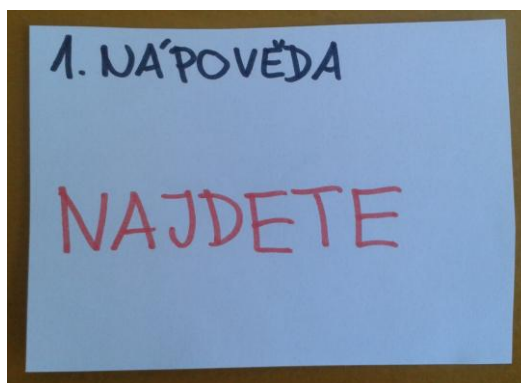 1. NÁPOVĚDA
NAJDETE